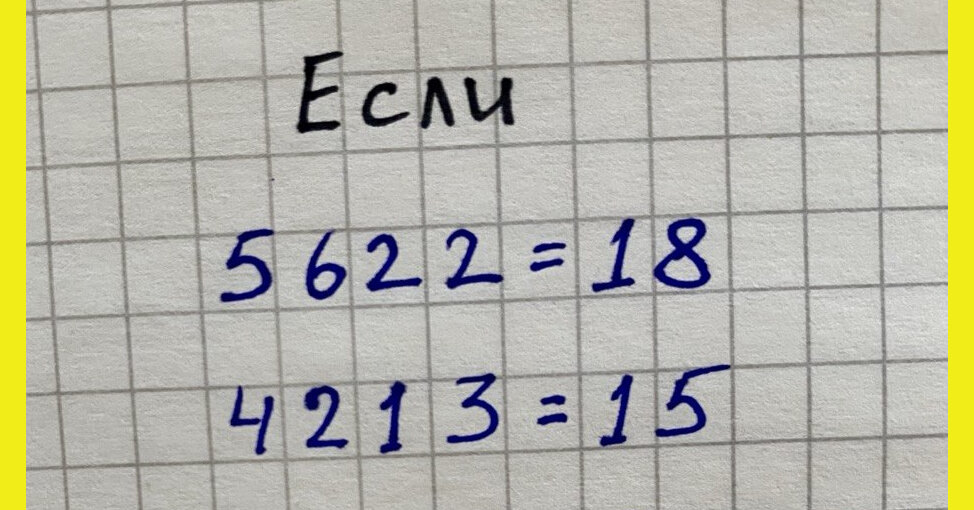 Если
5622=18
4213=15